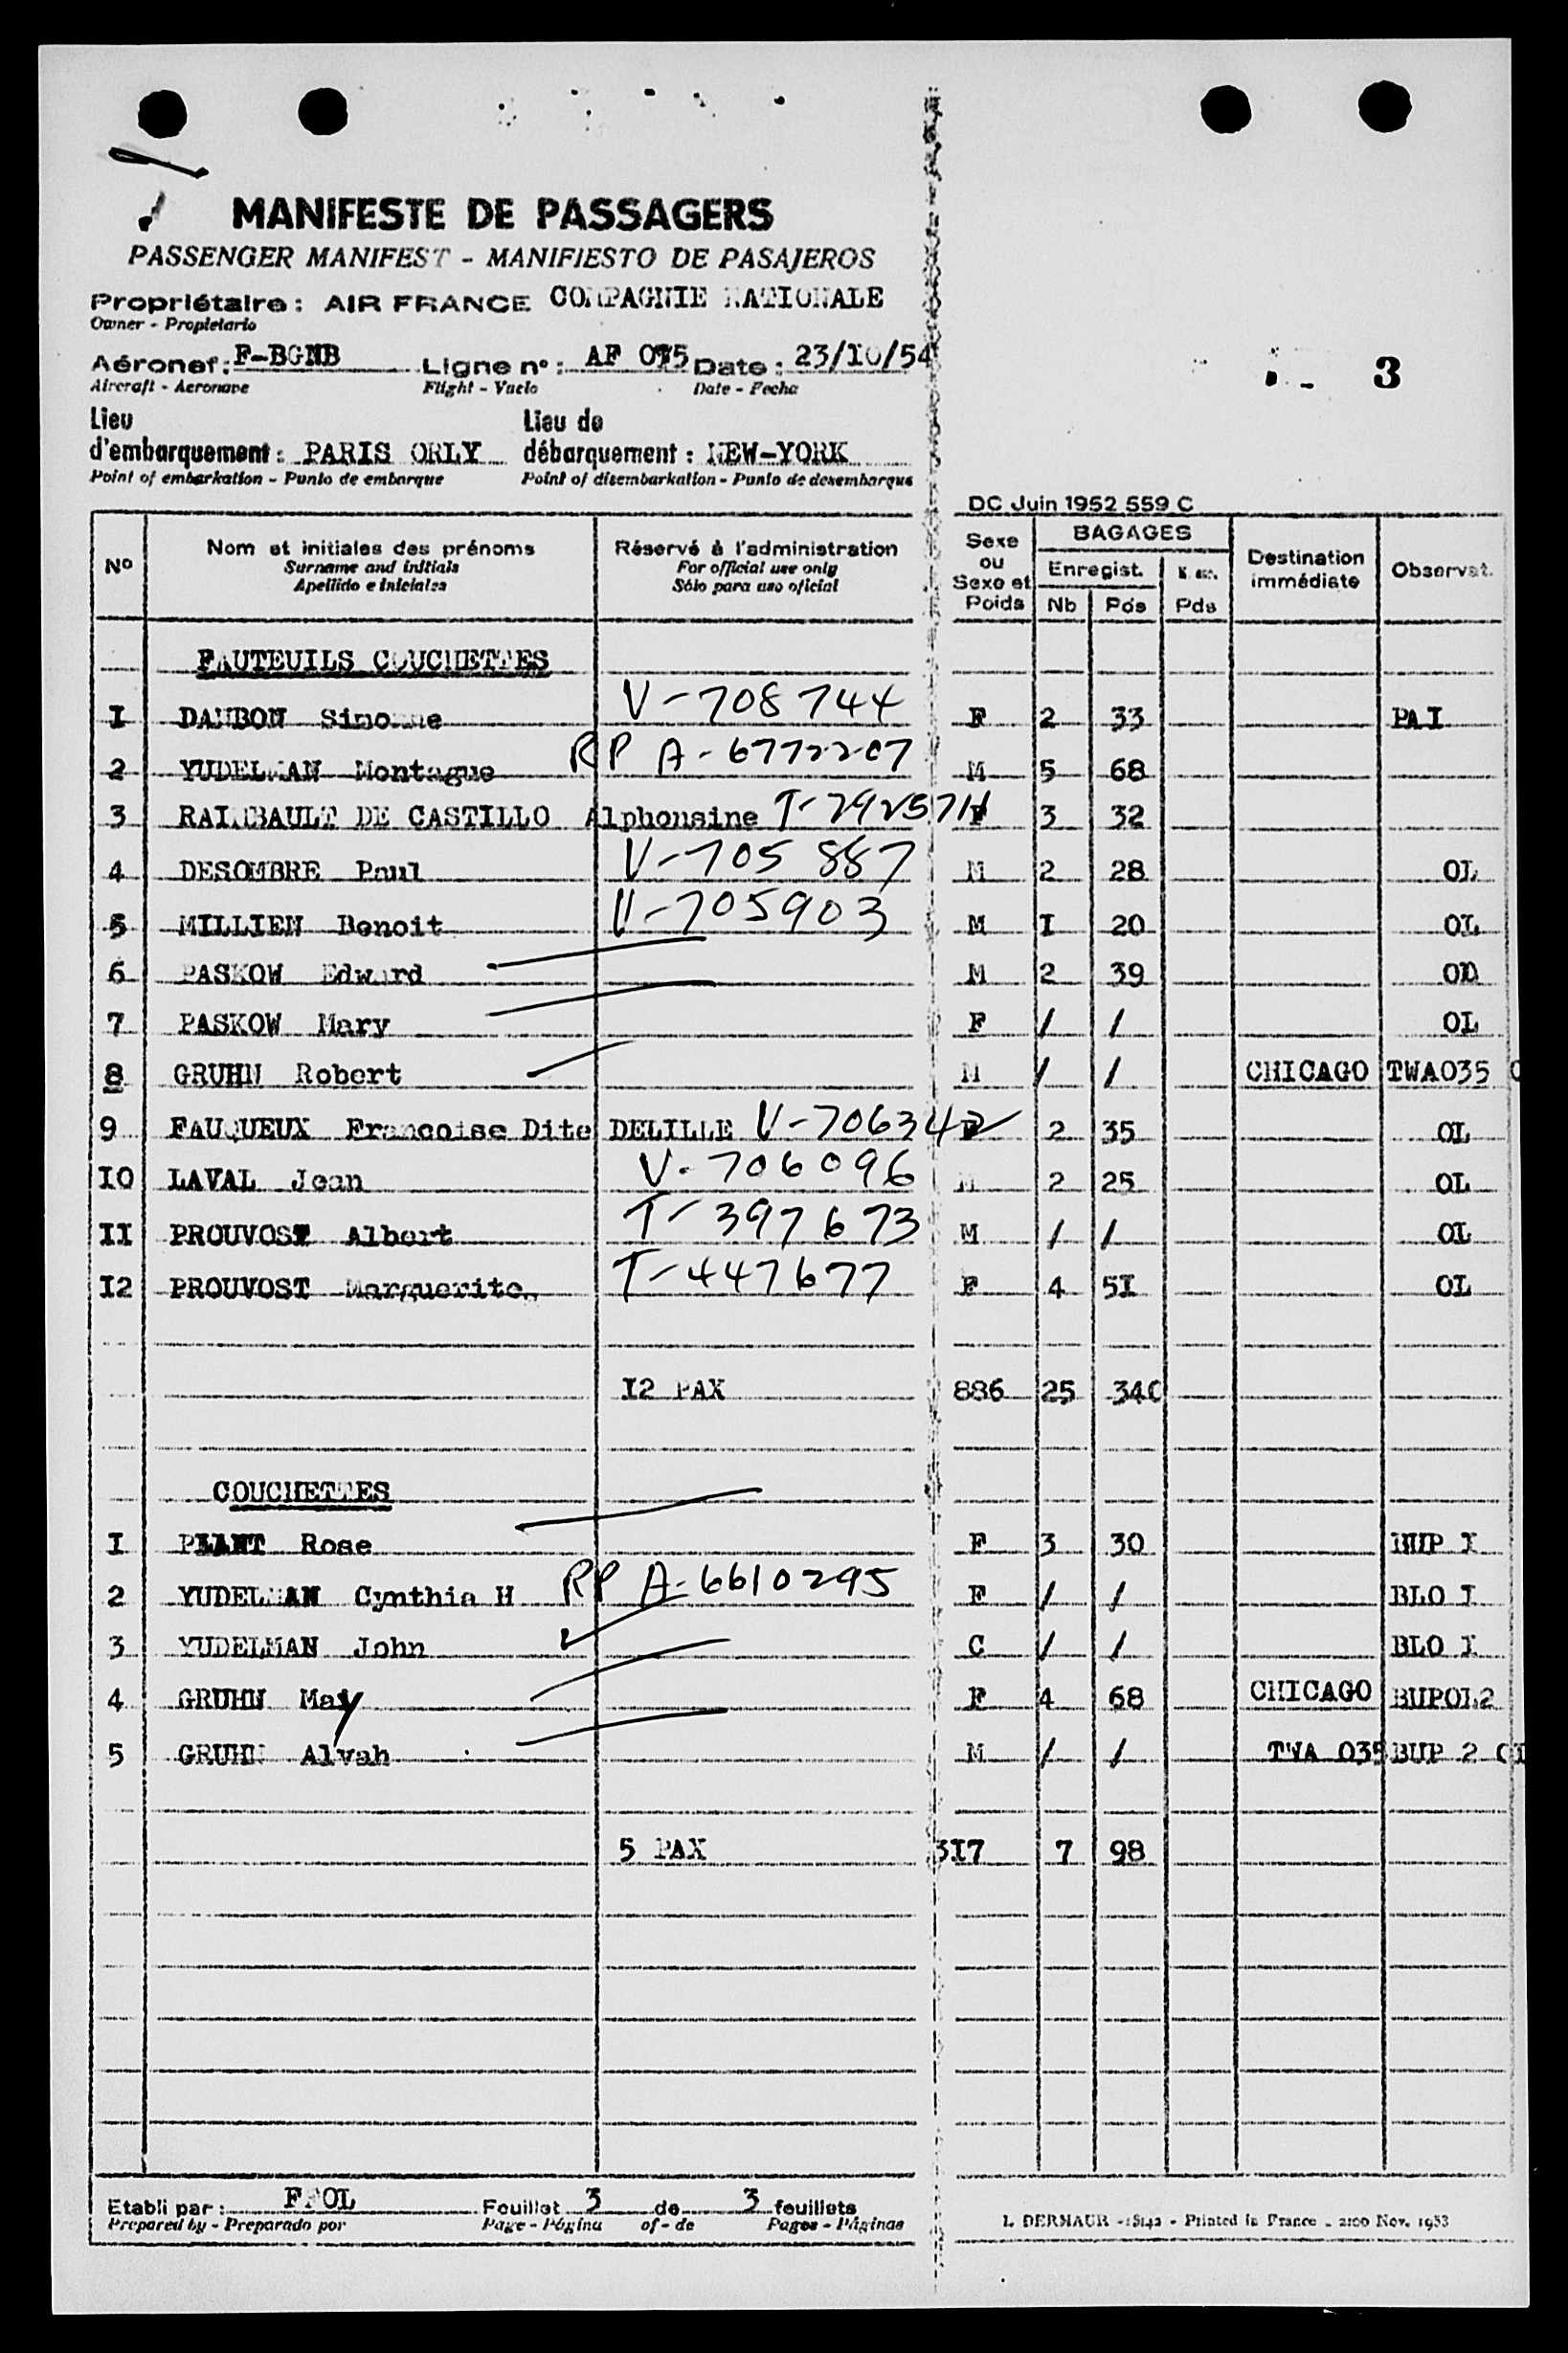 MANIFESTE DE PASSAGERS
PASSENGER MANIFEST - MANIFIESTO DE PASAJEROS
Propriétaire : AIR FRANCE COMPAGNIE NATIONALE
Owner - Propietario
Aéronef : F-BGNB Ligne n° : AF 075 Date : 23/IO/54
Aircraft - Aeronave Flight - Vuelo Date - Fecha
3
Lieu d'embarquement : PARIS ORLY Lieu de débarquement : NEW-YORK
Point of embarkation - Punto de embarque Point of disembarkation - Punto de desembarque
DC Juin 1952 559 C
N° Nom et initiales des prénoms Réservé à l'administration Sexe ou BAGAGES Destination immédiate Observat.
Surname and initials For official use only Sexo et Poids Enregist.
Apellido e iniciales Sólo para uso oficial Nb Pds Pds
FAUTEUILS COUCHETTES
I DAMBON Simonne V-708744 F 2 33 PA I
2 YUDELMAN Montague RP A-6772207 M 5 68
3 RAIMBAULT DE CASTILLO Alphonsine T-792571 F 3 32
4 DESOMBRE Paul V-705887 M 2 28 OL
5 MILLIEN Benoit V-705903 M I 20 OL
6 PASKOW Edward M 2 39 OL
7 PASKOW Mary F / / OL
8 GRUHN Robert M / / CHICAGO TWA035
9 FAUQUEUX Francoise Dite DELILLE V-706342 F 2 35 OL
IO LAVAL Jean V-706096 M 2 25 OL
II PROUVOST Albert T-397673 M / / OL
I2 PROUVOST Marguerite T-447677 F 4 5I OL
I2 PAX 886 25 340
COUCHETTES
I PLANT Rose F 3 30 BUP I
2 YUDELMAN Cynthia H RP A-6610295 F / / BLO I
3 YUDELMAN John C / / BLO I
4 GRUHN May F 4 68 CHICAGO BUPOL2
5 GRUHN Alvah M / / TWA 035 BUP 2
5 PAX 3I7 7 98
Etabli par : Feuillet 3 de 3 feuillets
Prepared by - Preparado por Page - Página of - de Pages - Páginas
L. DERMAUR - Printed in France - 2100 Nov. 1953